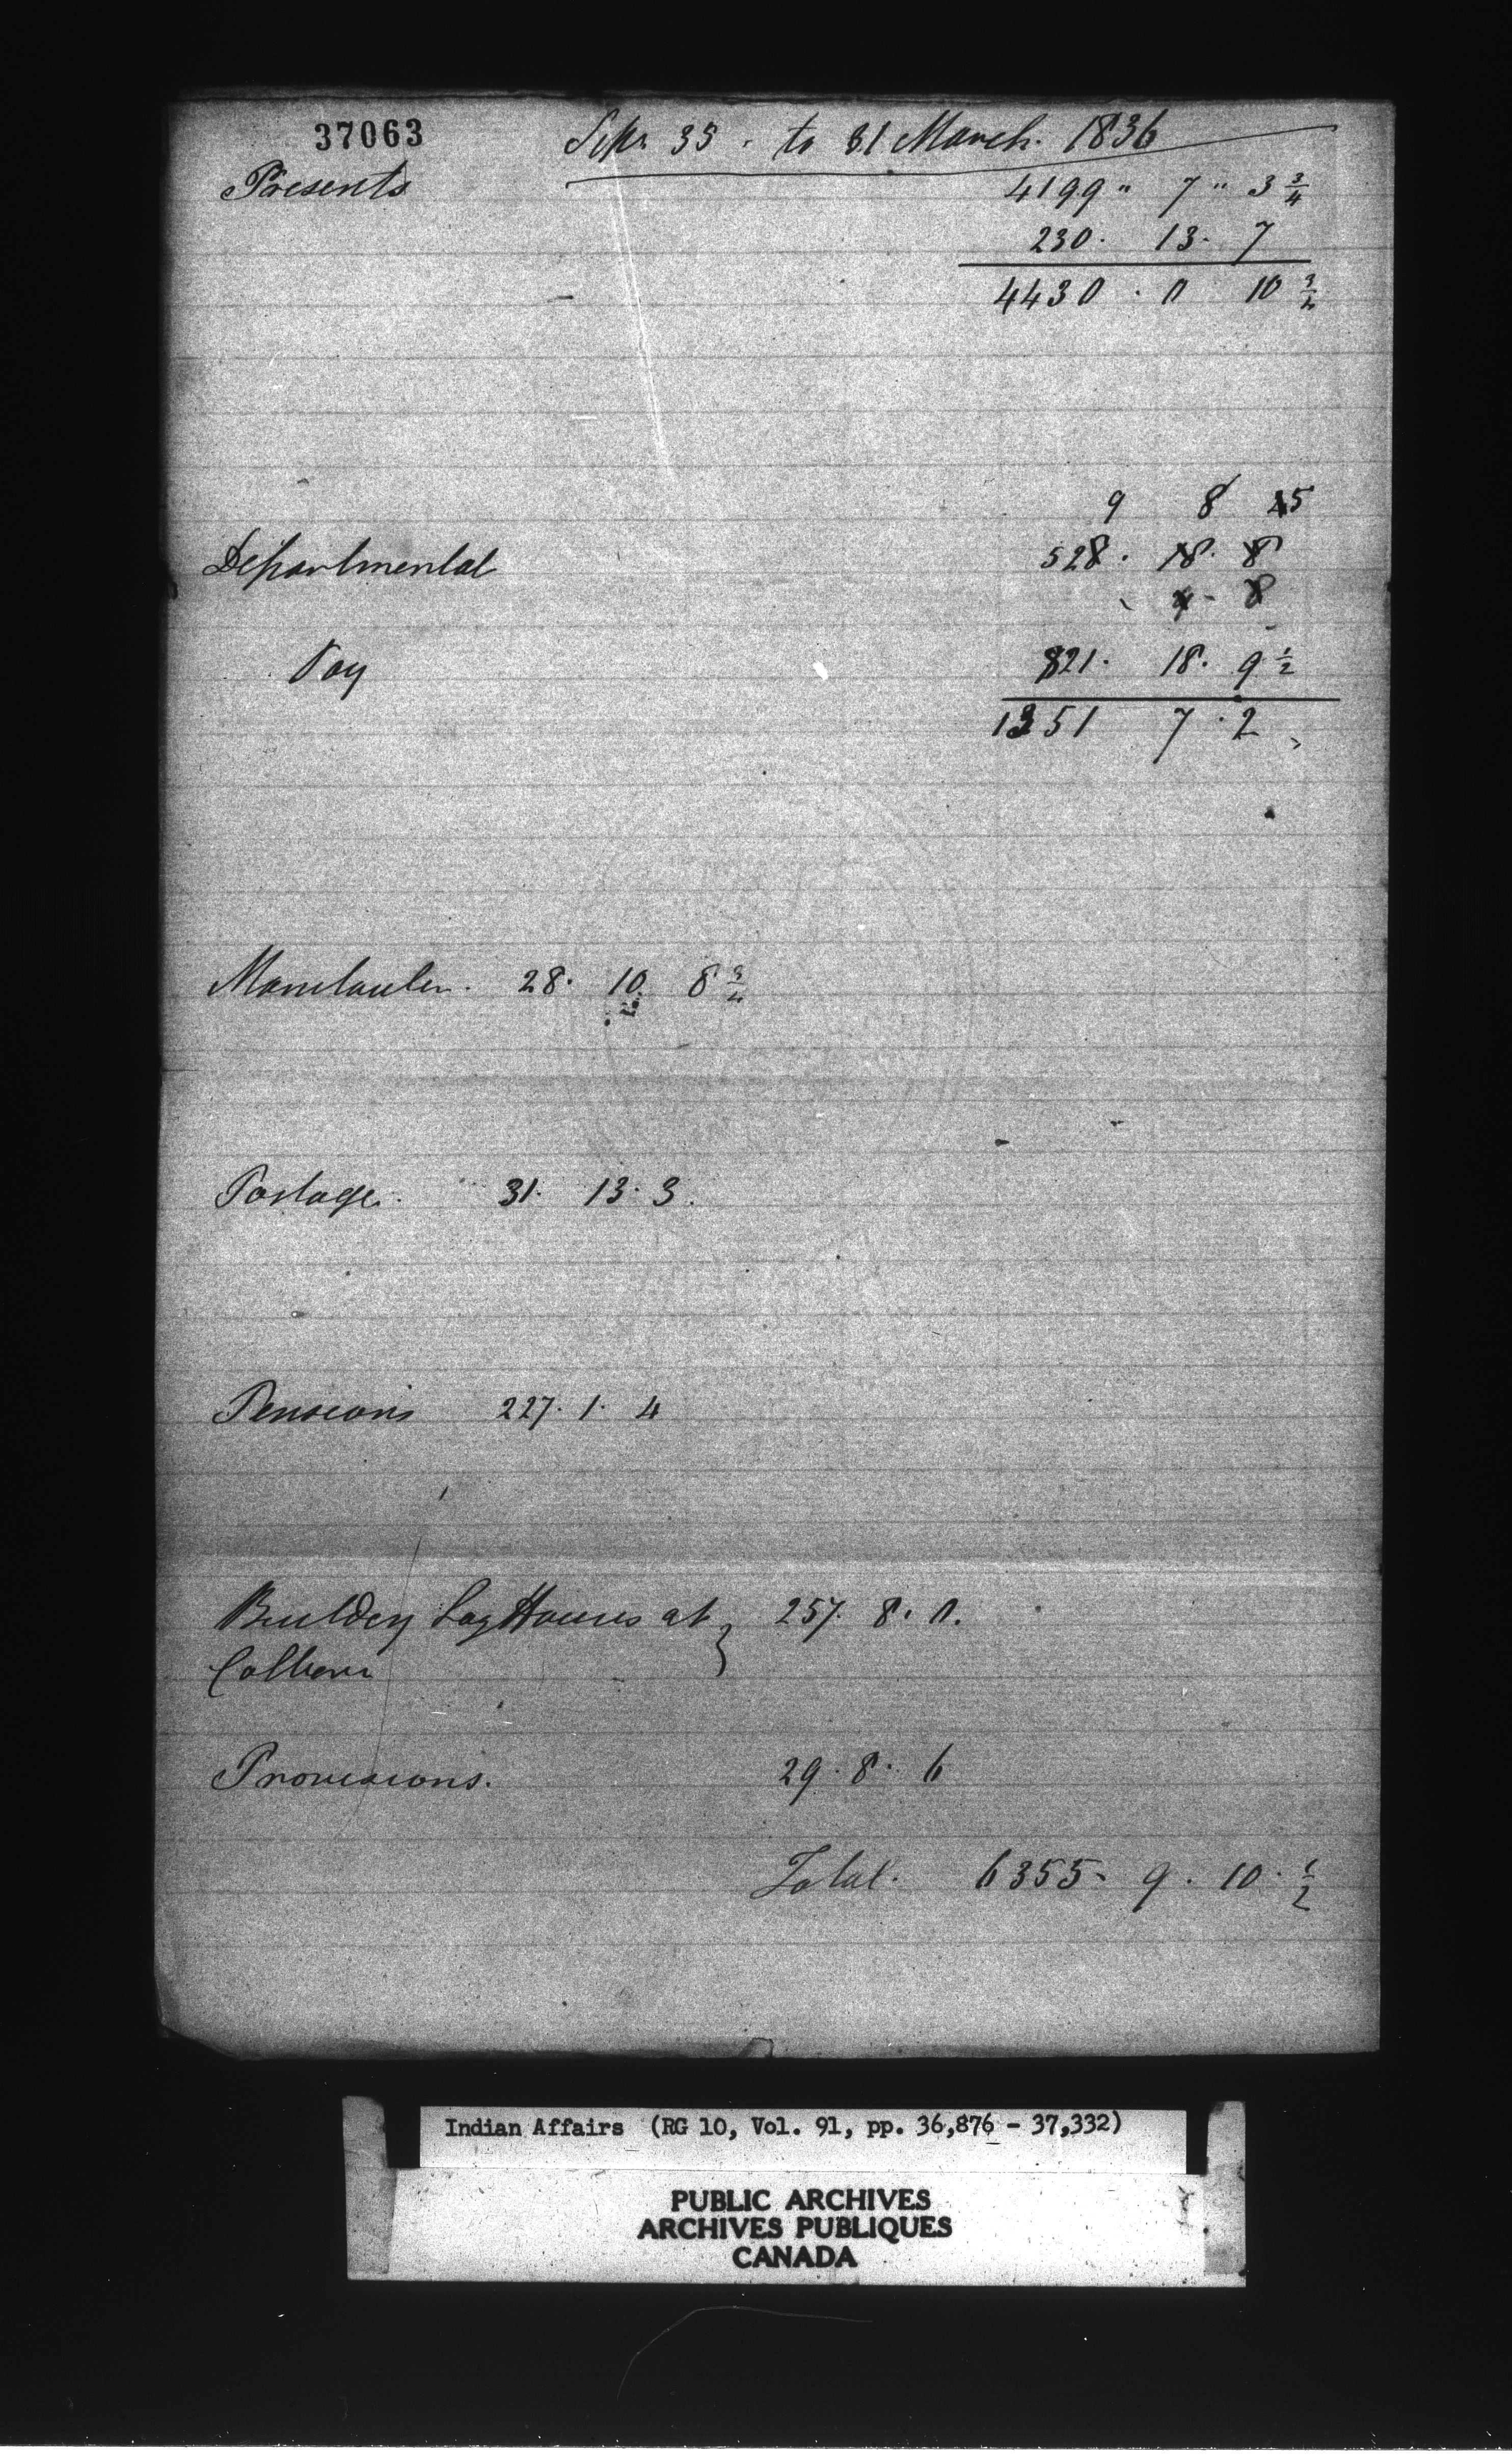 37063
Sepr 35. to 31 March. 1836
Presents 4199 " 7 " 3 3/4
230. 13. 7
4430. 0 10 3/4
9 8 5
Departmental 528. 18. 8
Pay 821. 18. 9 1/2
1351 7. 2
28. 10 8 3/4
Postage. 31. 13. 3.
Pensions 227. 1. 4
Buildey Log Houses at } 257. 8. 0.
Colbern
Provisions. 29. 8. 6
Total. 6355. 9. 10. 1/2
Indian Affairs (RG 10, Vol. 91, pp. 36,876 - 37,332)
PUBLIC ARCHIVES
ARCHIVES PUBLIQUES
CANADA